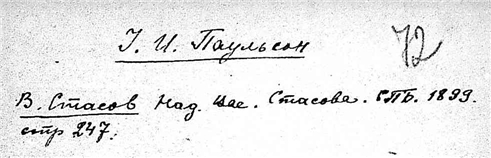 І. И. Паульсон 72
В. Стасов Над. Вас. Стасова. СПБ. 1899.
стр 247.